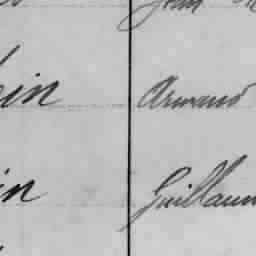 ein Armand
in Guillaum